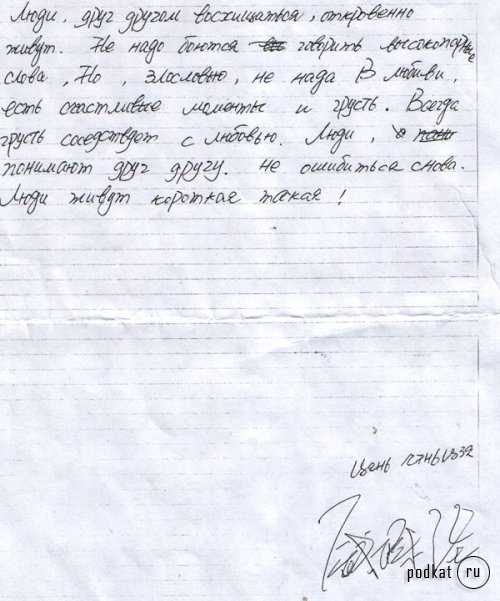 Люди, друг другом восхищаться, откровенно
живут. Не надо боются говорить высокопарные
слова, Но, злословью, не нада В любви,
есть счастливые моменты и грусть. Всегда
грусть соседствдот с любовью. Люди,
понимают друг другу. не ошибиться снова.
Люди живут короткая такая!
Цень
podkat ru